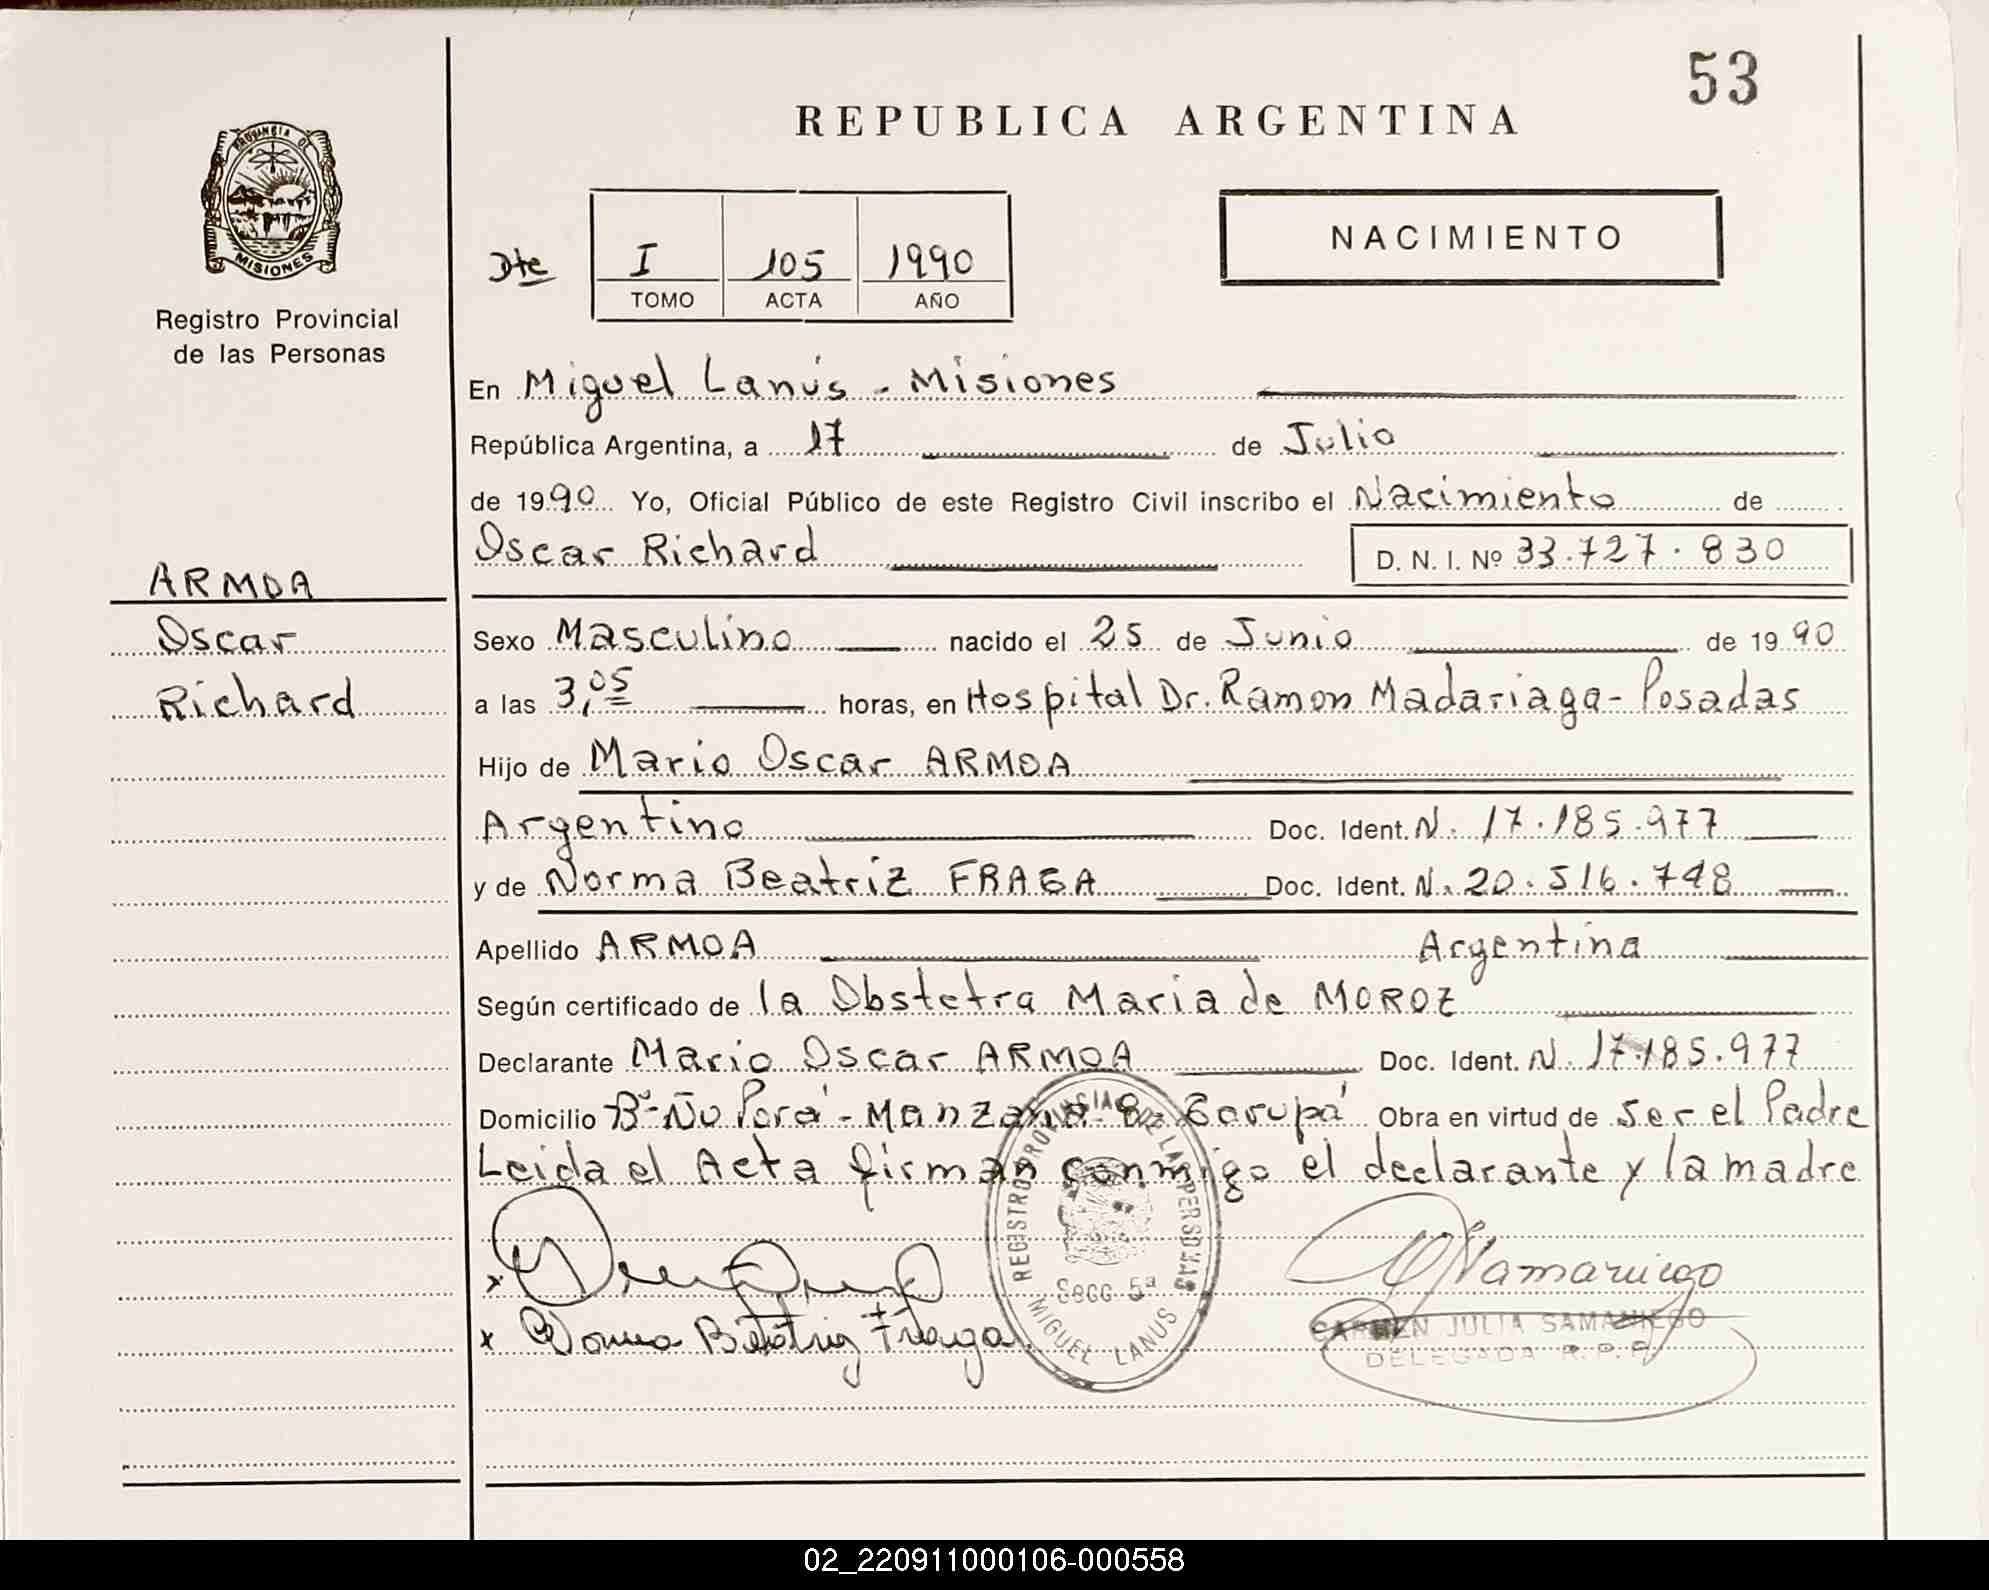 53
REPUBLICA ARGENTINA
PROVINCIA DE
MISIONES
Registro Provincial
de las Personas
NACIMIENTO
Dte I 105 1990
TOMO ACTA AÑO
En Miguel Lanús - Misiones
República Argentina, a 17 de Julio
de 1990 Yo, Oficial Público de este Registro Civil inscribo el Nacimiento de
Oscar Richard D. N. I. Nº 33.727.830
ARMOA
Oscar
Richard
Sexo Masculino nacido el 25 de Junio de 1990
a las 3,05 horas, en Hospital Dr. Ramon Madariaga - Posadas
Hijo de Mario Oscar ARMOA
Argentino Doc. Ident. N. 17.185.977
y de Norma Beatriz FRAGA Doc. Ident. N. 20.516.748
Apellido ARMOA Argentina
Según certificado de la Obstetra Maria de MOROZ
Declarante Mario Oscar ARMOA Doc. Ident. N. 17.185.977
Domicilio Bº Ñu Porá - Manzana 8 - Garupá Obra en virtud de ser el Padre
Leida el Acta firman conmigo el declarante y la madre
REGISTRO PROVINCIAL DE LAS PERSONAS
Secc 5ª
MIGUEL LANUS
x
x Norma Beatriz Fraga
CJSamaniego
CARMEN JULIA SAMANIEGO
DELEGADA R.P.P.
02_220911000106-000558